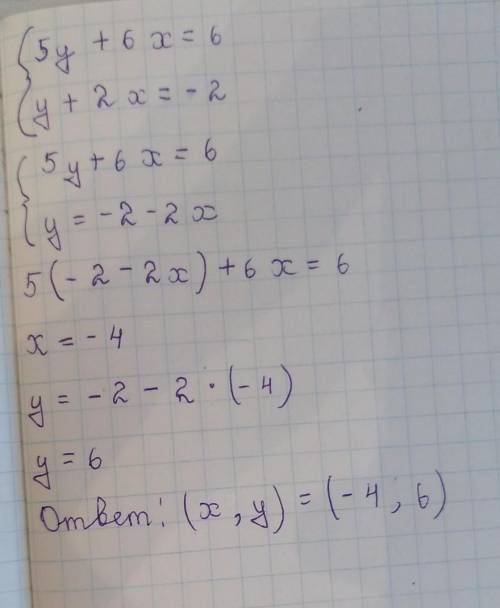 5y + 6x = 6
y + 2x = - 2
5y + 6x = 6
y = - 2 - 2x
5(- 2 - 2x) + 6x = 6
x = - 4
y = - 2 - 2 · (- 4)
y = 6
Ответ: (x, y) = (- 4; 6)